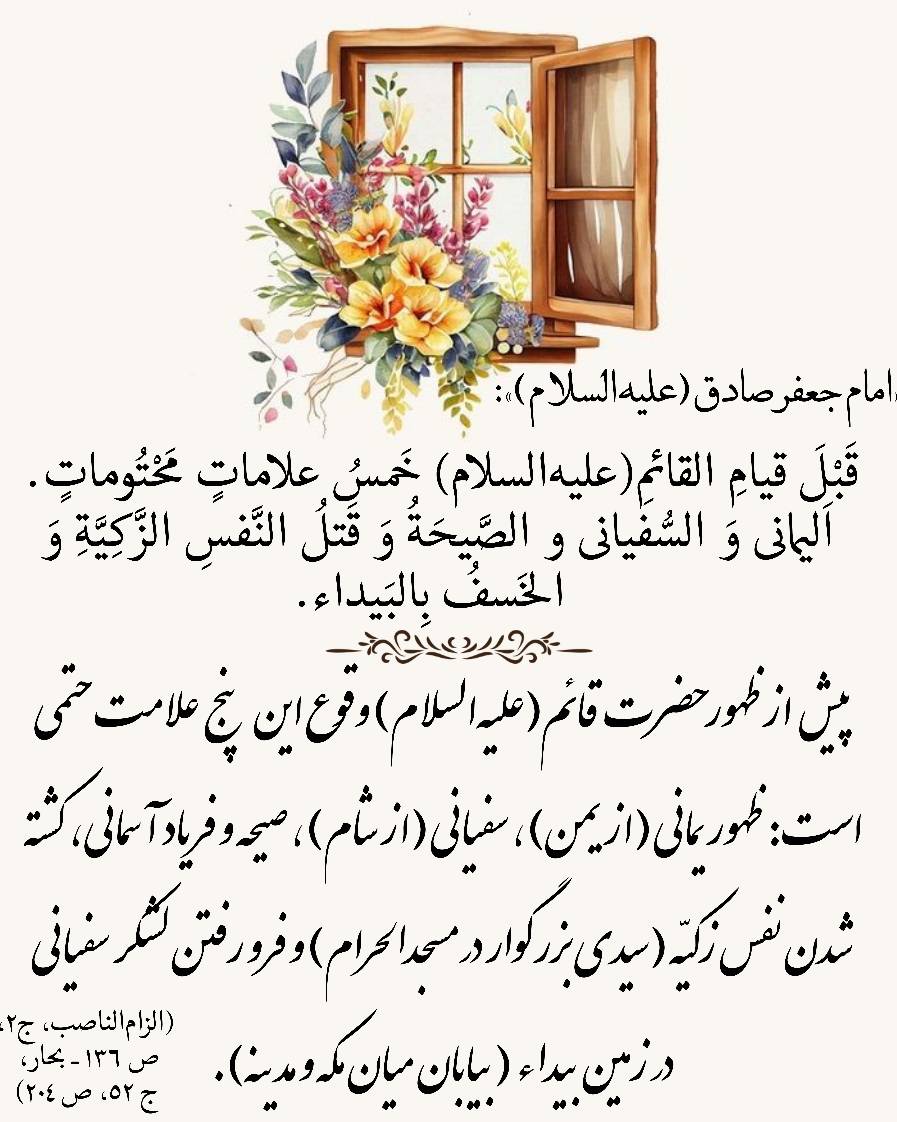 «امام جعفر صادق (علیه‌السلام)»:
قَبْلَ قیامِ القائمِ (علیه‌السلام) خَمسُ علاماتٍ مَحْتُوماتٍ.
الیمانی وَ السُّفیانی و الصَّیحَةُ وَ قَتلُ النَّفسِ الزَّکِیَّةِ وَ
الخَسفُ بِالبَیداء.
پیش از ظهور حضرت قائم (علیه السلام) وقوع این پنج علامت حتمی
است: ظهور یمانی (از یمن)، سفیانی (از شام)، صیحه و فریاد آسمانی، کشته
شدن نفس زکیّه (سیدی بزرگوار در مسجدالحرام) و فرو رفتن لشکر سفیانی
در زمین بیداء (بیابان میان مکه و مدینه).
(الزام‌الناصب، ج۲،
ص ۱۳۶ - بحار،
ج ۵۲، ص ۲۰۴)